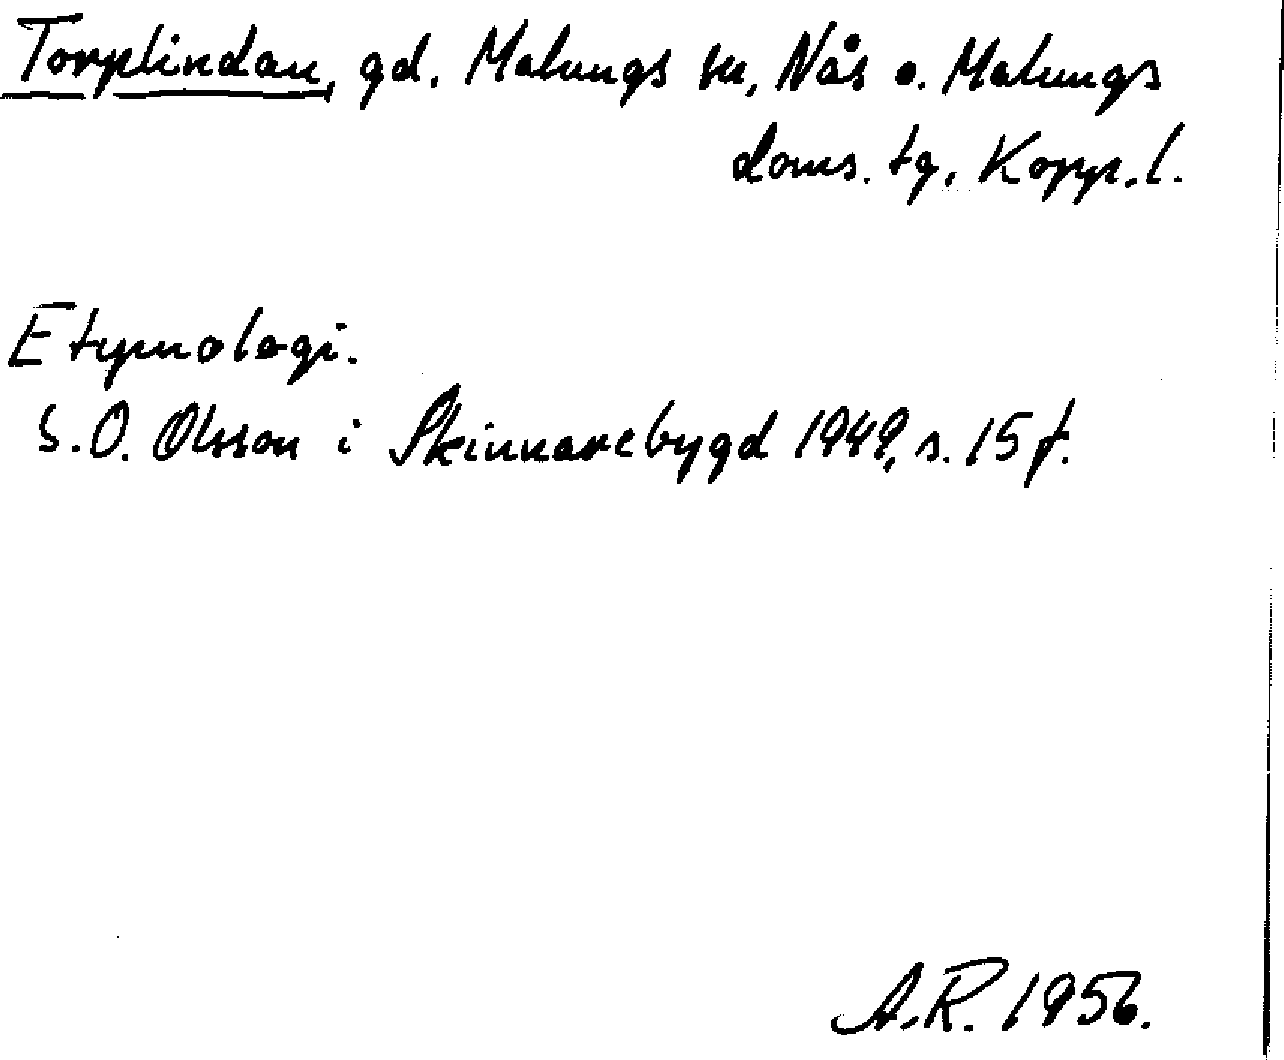 Torplindan, gd. Malungs sn, Nås o. Malungs
doms. tg, Kopp. l.
Etymologi.
S.O. Olsson i Skinnarebygd 1949, s. 15 f.
A.R. 1956.